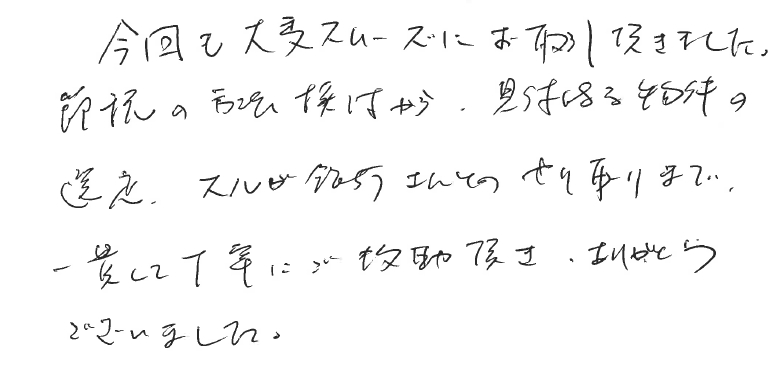 今回も大変スムーズにお取引頂きました。
節税の方法検討から、具体的な物件の
選定、スルガ銀行さんとのやり取りまで、
一貫して丁寧にご教助頂き、ありがとう
ございました。